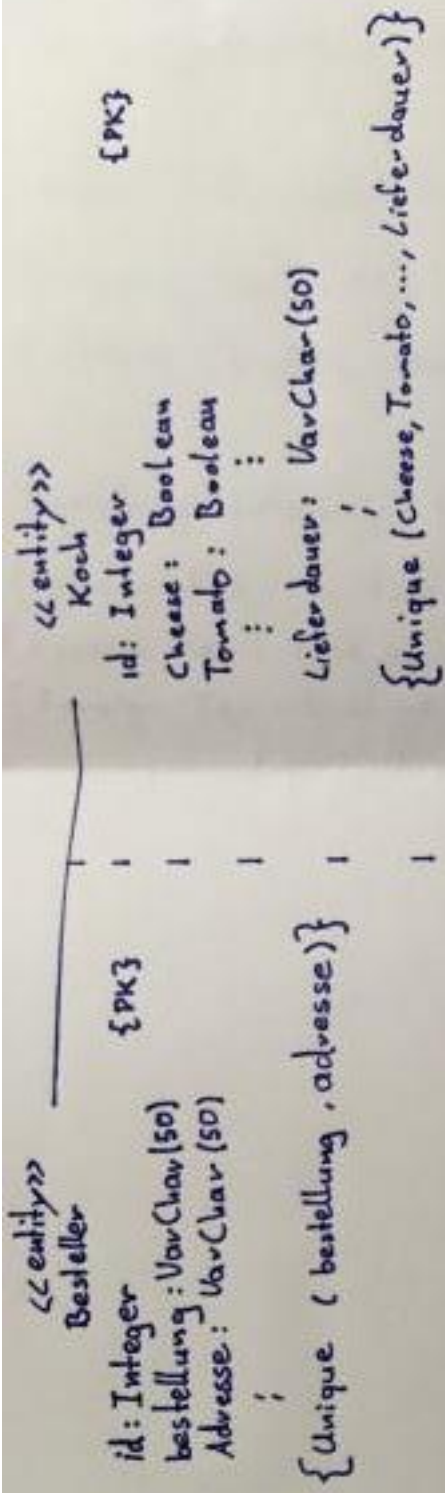 <<entity>>
Besteller
id: Integer {PK}
bestellung: VarChar(50)
Adresse: VarChar(50)
;
{Unique (bestellung, adresse)}
<<entity>>
Koch
id: Integer {PK}
Cheese: Boolean
Tomato: Boolean
⋮ ⋮
Lieferdauer: VarChar(50)
;
{Unique (Cheese, Tomato, ..., Lieferdauer)}